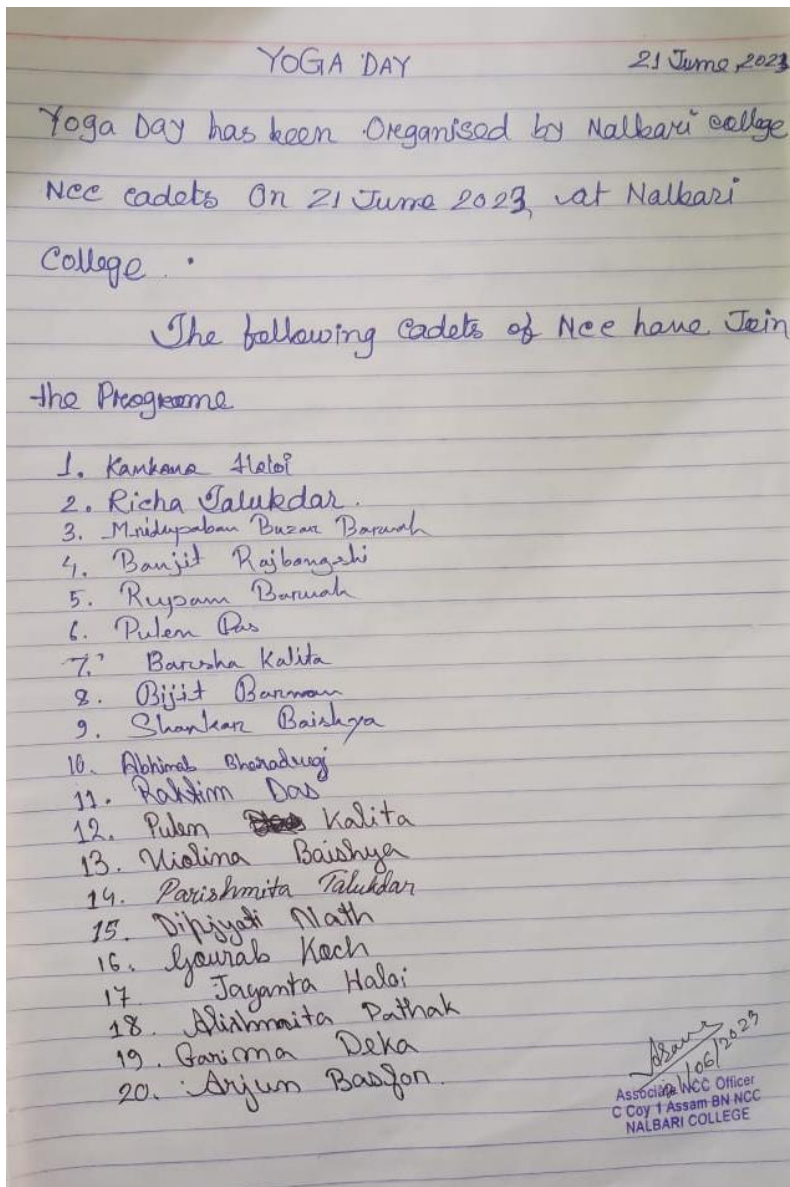 YOGA DAY 21 June, 2023
Yoga Day has been Organised by Nalbari college
Ncc cadets On 21 June 2023, at Nalbari
College.
The following Cadets of Ncc have Join
the Programme
1. Kankana Haloi
2. Richa Talukdar.
3. Mridupaban Buzar Baruah
4. Banjit Rajbangshi
5. Rupam Baruah
6. Pulen Das
7. Barsha Kalita
8. Bijit Barman
9. Shankar Baishya
10. Abhinab Bharadwaj
11. Raktim Das
12. Pulen Kalita
13. Violina Baishya
14. Parishmita Talukdar
15. Dipjyoti Nath
16. Gourab Koch
17 Jayanta Haloi
18. Alishmita Pathak
19. Garima Deka
20. Arjun Basfor.
21/06/2023
Associate NCC Officer
C Coy 1 Assam BN NCC
NALBARI COLLEGE